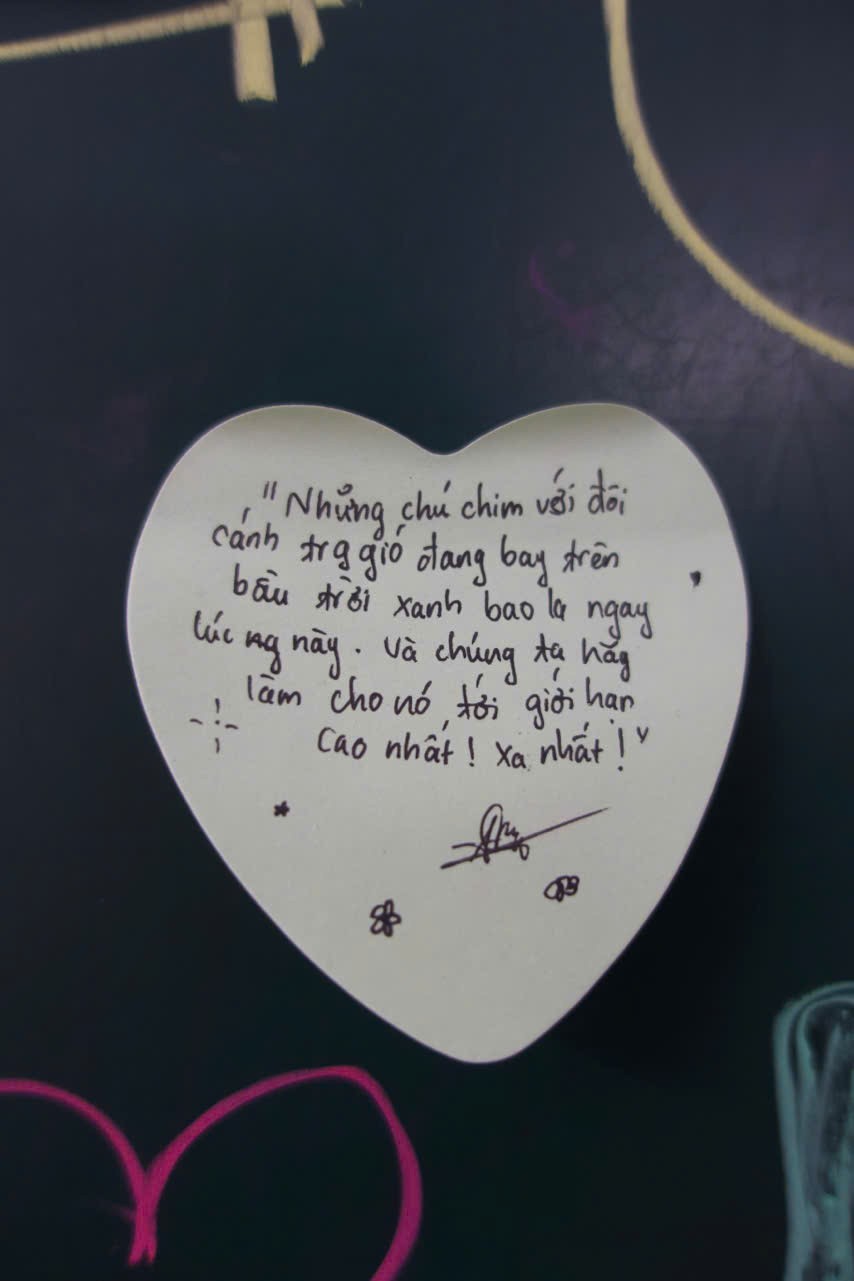 "Những chú chim với đôi
cánh trg gió đang bay trên
bầu trời xanh bao la ngay
lúc này. Và chúng ta hãy
làm cho nó tới giới hạn
cao nhất! Xa nhất!"